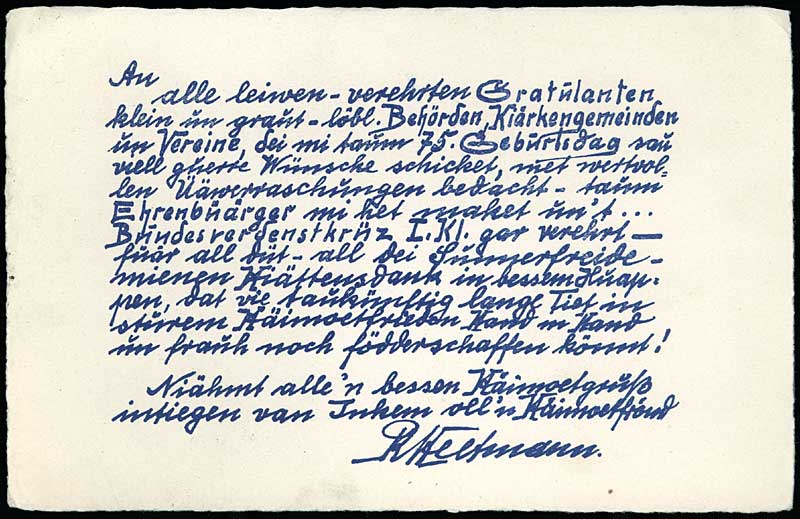 An
alle leiwen - verehrten Gratulanten
klein un graut - löbl. Behörden, Kiärkengemeinden
un Vereine, dei mi taum 75. Geburtsdag sau
viell guerre Wünsche schicket, met wertvol-
len Üäwerraschungen bedacht - taum
Ehrenbüärger mi het maket un't ...
Bundesverdenstkrüz I. Kl. gar verehrt —
fuär all düt - all dei Sunnerfreide -
mienen Hiättensdank in bessem Huap-
pen, dat vie taukünftig lange Tiet in
stürem Häimoetfrieden Hand in Hand
un frauh noch födderschaffen könnt!
Niähmt alle'n bessen Häimoetgruß
intiegen van Inkem oll'n Häimoetfrönd